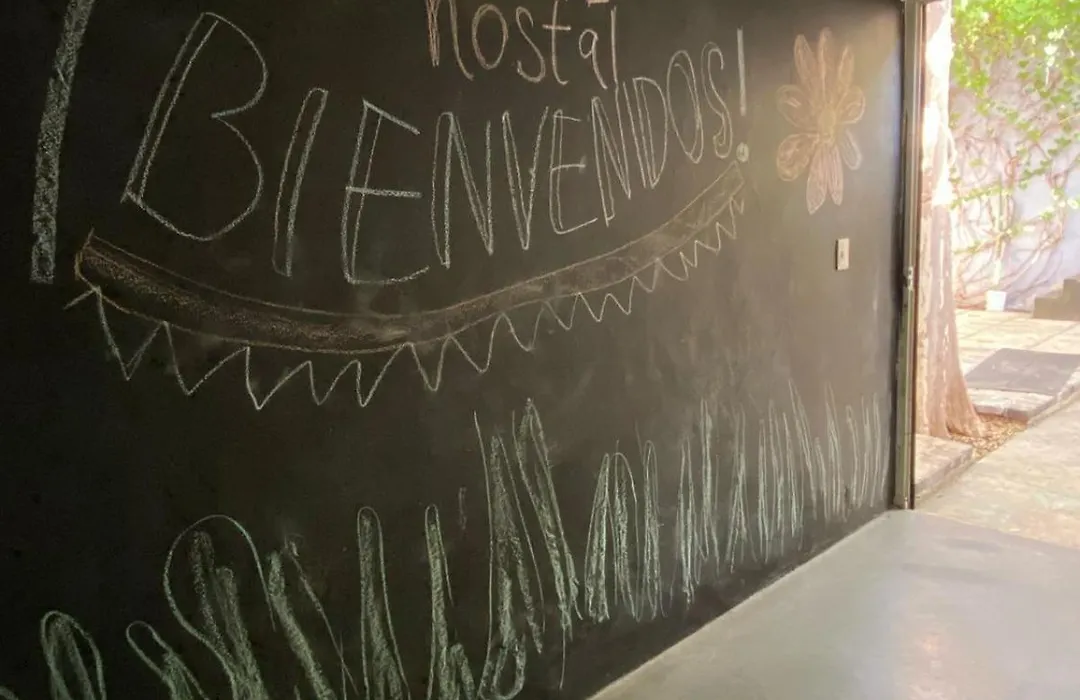 hostal
BIENVENIDOS!